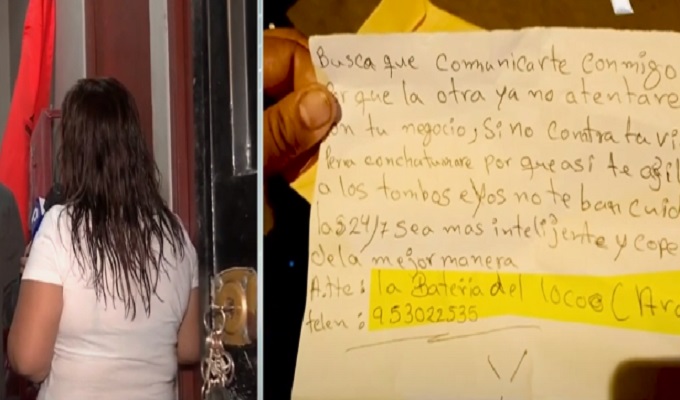 Busca que comunicarte conmigo
Porque la otra ya no atentare
con tu negocio, Si no contra tu vi
conchatumare por que asi te
a los tombos eyos no te ban cuid
los 24/7 sea mas intelijente y cope
de la mejor manera
A.tte: la Bateria del locoo (Ar
telen: 953022535